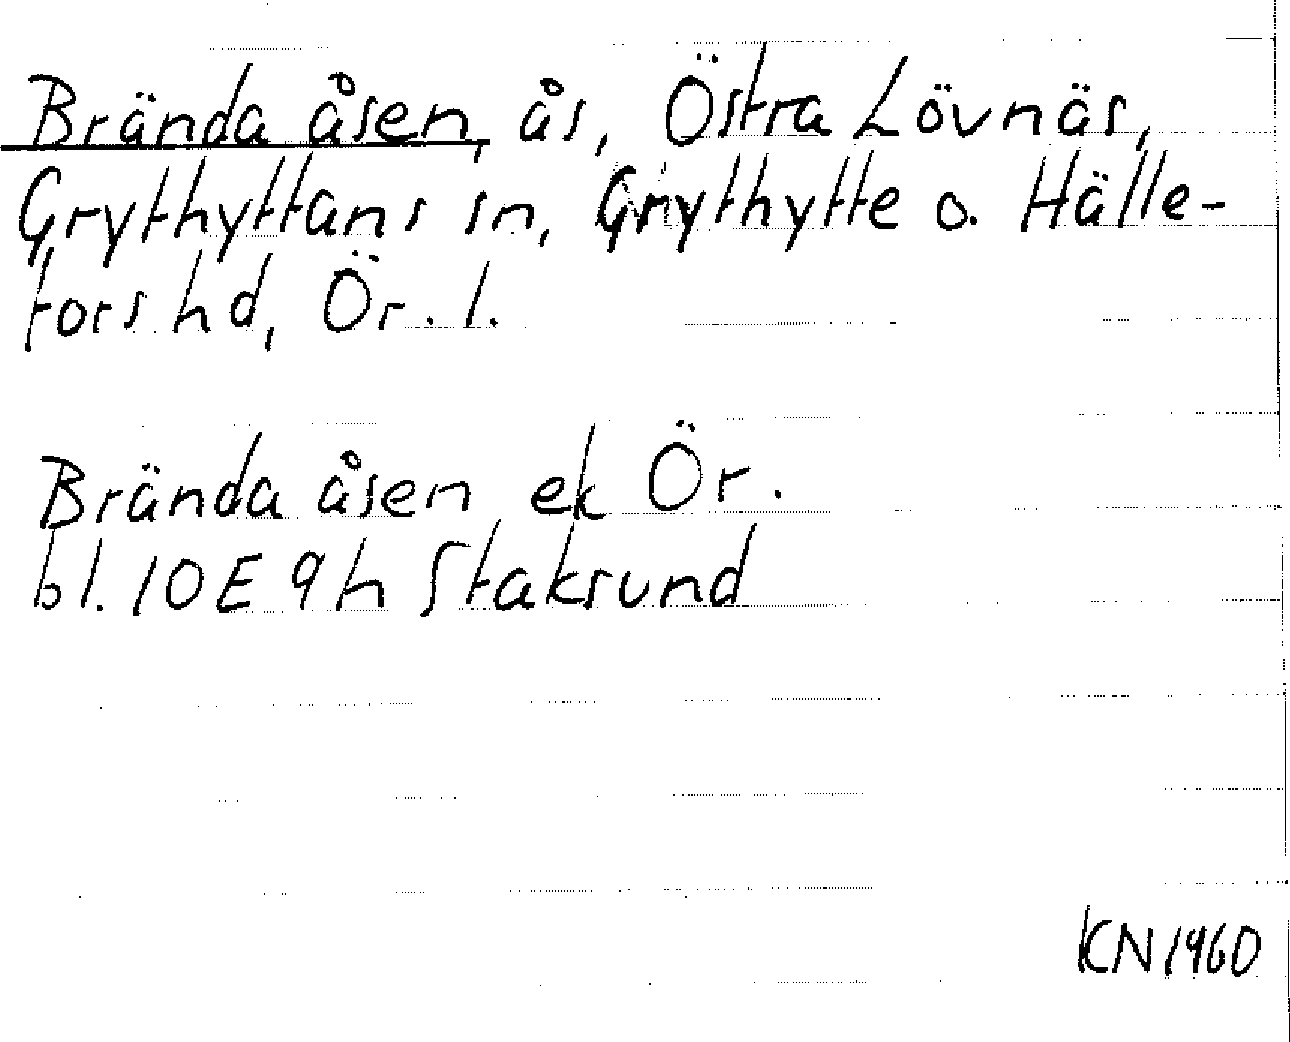 Brända åsen, ås, Östra Lövnäs,
Grythyttans sn, Grythytte o. Hälle-
fors hd, Ör. l.
Brända åsen ek Ör.
bl. 10E 9h Staksund
KN 1960